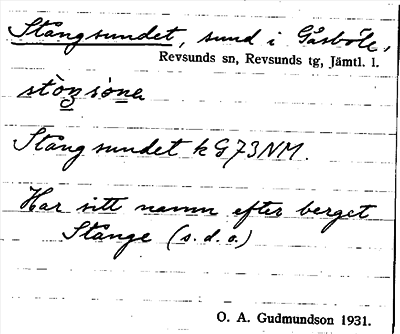 Stångsundet, sund i Gåsböle,
Revsunds sn, Revsunds tg, Jämtl. l.
Stångsundet k G73NM.
Har sitt namn efter berget
Stånge (s.d.o.)
O. A. Gudmundson 1931.